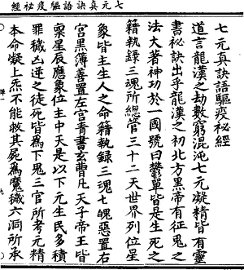 七元真訣語驅疫祕經
七元真訣語驅疫祕經
道言龍漢之劫數窮混沌七元凝精皆有靈
書祕訣出乎龍漢之初北方黑帝有征鬼之
法大著神功於一國號曰鬱單皆是生死之
籍執錄三魂所總管三十二天世界列位星
象皆主生人之命籍執錄三魂七魄惡置右
宮黑簿善置左宮青書玄曹凡天子帝王皆
稟星辰應象位主中天是以下元生民多積
罪穢凶逆之徒死皆為下鬼三官所考元精
本命凝上炁不能救其屍為魔穢六洞所承